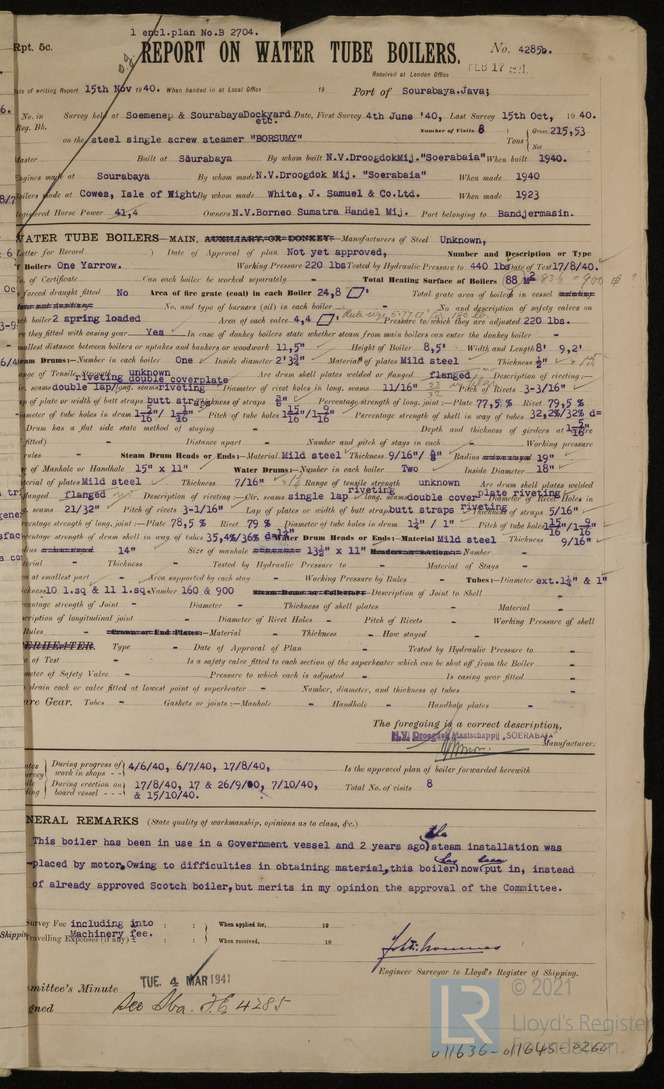 1 encl.plan No.B 2704.
Rpt. 5c.
REPORT ON WATER TUBE BOILERS.
No. 4285b.
Received at London Office FEB 17 1941
Date of writing Report 15th Nov 1940. When handed in at Local Office 19 Port of Sourabaya.Java;
No. in Reg. Bk. Survey held at Soemenep & SourabayaDockyard etc. Date, First Survey 4th June '40, Last Survey 15th Oct, 1940.
Number of Visits 8
on the steel single screw steamer "BORSUMY" Tons Gross 215,53 Net
Master Built at Sourabaya By whom built N.V.DroogdokMij."Soerabaia" When built 1940.
Engines made at Sourabaya By whom made N.V.Droogdok Mij. "Soerabaia" When made 1940
Boilers made at Cowes, Isle of Wight By whom made White, J. Samuel & Co.Ltd. When made 1923
Registered Horse Power 41,4 Owners N.V.Borneo Sumatra Handel Mij. Port belonging to Bandjermasin.
WATER TUBE BOILERS—MAIN, AUXILIARY, OR DONKEY.—Manufacturers of Steel Unknown,
Letter for Record Date of Approval of plan Not yet approved, Number and Description or Type
of Boilers One Yarrow. Working Pressure 220 lbs Tested by Hydraulic Pressure to 440 lbs Date of Test 17/8/40.
No. of Certificate - Can each boiler be worked separately - Total Heating Surface of Boilers 88 M2
forced draught fitted No Area of fire grate (coal) in each Boiler 24,8 Total grate area of boilers in vessel
No. and type of burners (oil) in each boiler - No. and description of safety valves on
each boiler 2 spring loaded Area of each valve 4,4 Pressure to which they are adjusted 220 lbs.
Are they fitted with easing gear Yes In case of donkey boilers state whether steam from main boilers can enter the donkey boiler -
Smallest distance between boilers or uptakes and bunkers or woodwork 11,5" Height of Boiler 8,5' Width and Length 8' 9,2'
Steam Drums:—Number in each boiler One Inside diameter 2'3¾" Material of plates Mild steel Thickness ½"
Range of Tensile Strength unknown Are drum shell plates welded or flanged flanged Description of riveting:—
Cir. seams double lap long. seams riveting double coverplate riveting Diameter of rivet holes in long. seams 11/16" Pitch of Rivets 3-3/16"
Lap of plate or width of butt straps butt straps Thickness of straps ⅜" Percentage strength of long. joint:—Plate 77,5 % Rivet 79,5 %
Diameter of tube holes in drum 1 5/16"/ 1 9/16" Pitch of tube holes 1 15/16"/1 9/16" Percentage strength of shell in way of tubes 32,2%/32% d=
If Drum has a flat side state method of staying - Depth and thickness of girders at 1 5/16"
Distance apart - Number and pitch of stays in each - Working pressure
Steam Drum Heads or Ends:—Material Mild steel Thickness 9/16"/ ⅝" Radius 19"
Size of Manhole or Handhole 15" x 11" Water Drums:—Number in each boiler Two Inside Diameter 18"
Material of plates Mild steel Thickness 7/16" Range of tensile strength unknown Are drum shell plates welded
or flanged flanged Description of riveting:—Cir. seams single lap riveting long. seams double cover plate riveting Diameter of Rivet Holes in
long. seams 21/32" Pitch of rivets 3-1/16" Lap of plates or width of butt straps butt straps Thickness of straps 5/16"
Percentage strength of long. joint:—Plate 78,5 % Rivet 79 % Diameter of tube holes in drum 1¼" / 1" Pitch of tube holes 1 15/16"/1 9/16"
Percentage strength of drum shell in way of tubes 35,4%/36% Water Drum Heads or Ends:—Material Mild steel Thickness 9/16"
Radius 14" Size of manhole 13½" x 11" Headers or Sections:—Number -
Material - Thickness - Tested by Hydraulic Pressure to - Material of Stays -
Area at smallest part - Area supported by each stay - Working Pressure by Rules - Tubes:—Diameter ext.1¼" & 1"
Thickness 10 l.sq & 11 l.sq. Number 160 & 900 Steam Dome or Collector:—Description of Joint to Shell
Percentage strength of Joint - Diameter - Thickness of shell plates - Material -
Description of longitudinal joint - Diameter of Rivet Holes - Pitch of Rivets - Working Pressure of shell
Rules - Crown or End Plates:—Material - Thickness - How stayed -
SUPERHEATER. Type - Date of Approval of Plan - Tested by Hydraulic Pressure to -
Date of Test - Is a safety valve fitted to each section of the superheater which can be shut off from the Boiler -
Diameter of Safety Valve - Pressure to which each is adjusted - Is easing gear fitted -
Is a drain cock or valve fitted at lowest point of superheater - Number, diameter, and thickness of tubes -
Spare Gear. Tubes - Gaskets or joints:—Manhole - Handhole - Handhole plates -
The foregoing is a correct description,
N.V. Droogdok Maatschappij „SOERABAJA"
Manufacturer.
During progress of work in shops - - 4/6/40, 6/7/40, 17/8/40, Is the approved plan of boiler forwarded herewith
During erection on board vessel - - - 17/8/40, 17 & 26/9/40, 7/10/40, & 15/10/40. Total No. of visits 8
GENERAL REMARKS (State quality of workmanship, opinions as to class, &c.)
This boiler has been in use in a Government vessel and 2 years ago the steam installation was
placed by motor. Owing to difficulties in obtaining material, this boiler has been now put in, instead
of already approved Scotch boiler, but merits in my opinion the approval of the Committee.
Survey Fee including into : : When applied for, 19
Travelling Expenses (if any) Machinery fee. : : When received, 19
Engineer Surveyor to Lloyd's Register of Shipping.
Committee's Minute TUE. 4 MAR 1941
Assigned See Sba. F.E 4285
© 2021
LR
Lloyd's Register
Foundation
011636-011645-0260